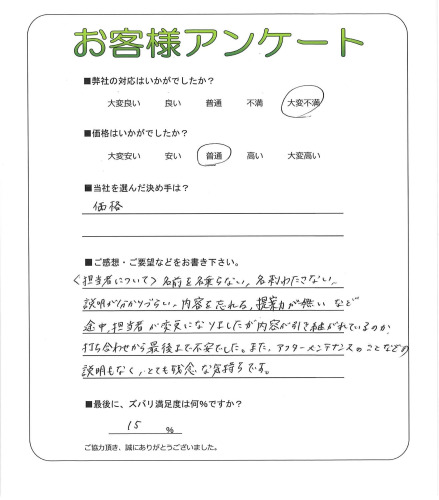 お客様アンケート
■弊社の対応はいかがでしたか?
大変良い 良い 普通 不満 大変不満
■価格はいかがでしたか?
大変安い 安い 普通 高い 大変高い
■当社を選んだ決め手は?
価格
■ご感想・ご要望などをお書き下さい。
〈担当者について〉名前を名乗らない、名刺わたさない、
説明が分かりづらい、内容を忘れる、提案力が無い など
途中、担当者が変更になりましたが内容が引き継がれているのか、
打ち合わせから最後まで不安でした。また、アフターメンテナンスのことなどの
説明もなく、とても残念な気持ちです。
■最後に、ズバリ満足度は何%ですか?
15 %
ご協力頂き、誠にありがとうございました。